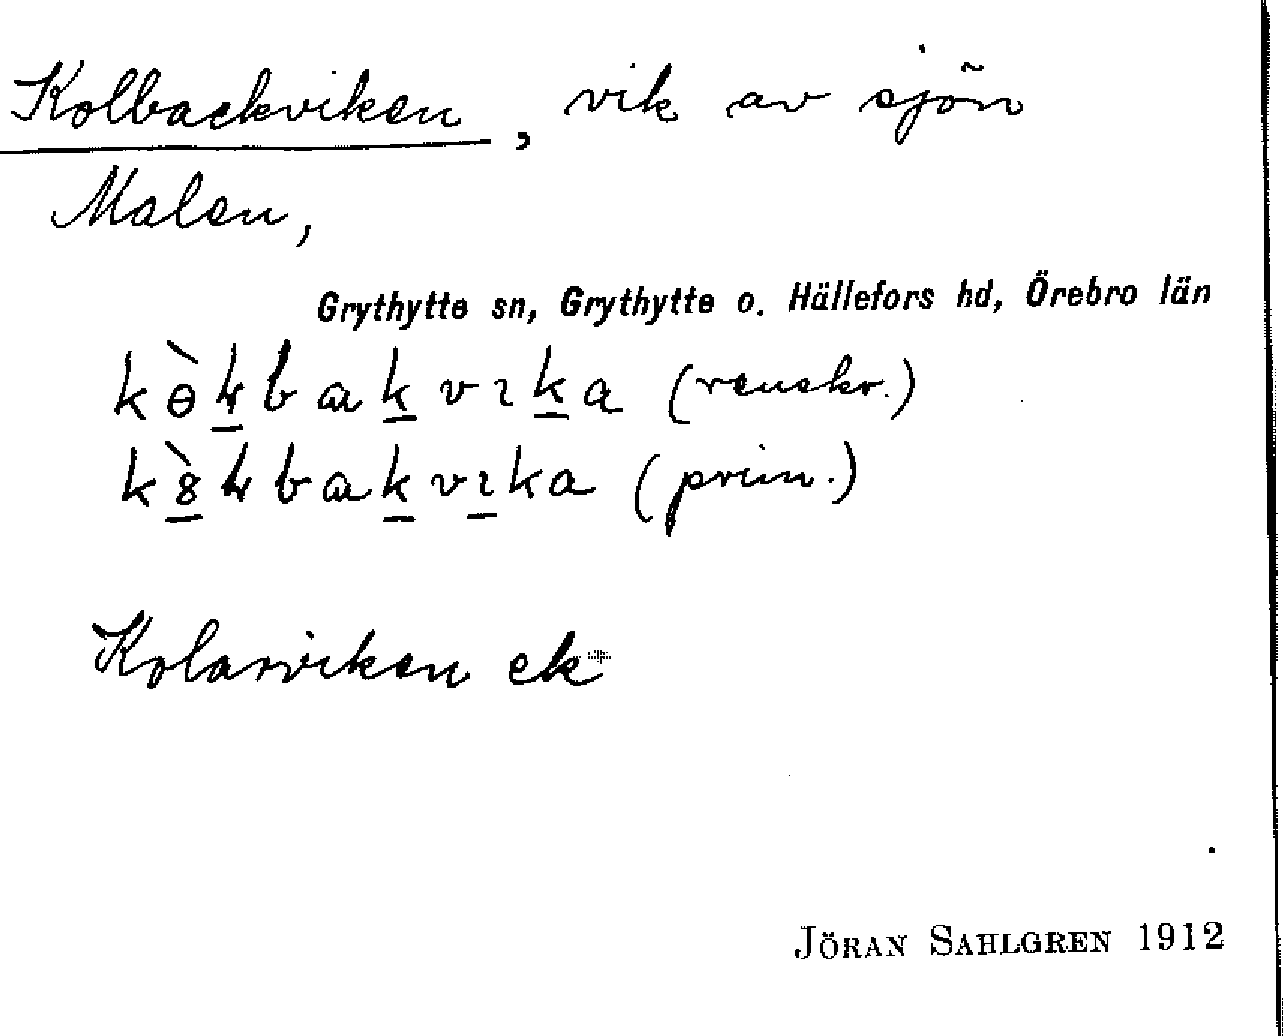 Kolbackviken, vik av sjön
Malen,
Grythytte sn, Grythytte o. Hällefors hd, Örebro län
(renskr.)
(prim.)
Kolarviken ek
JÖRAN SAHLGREN 1912